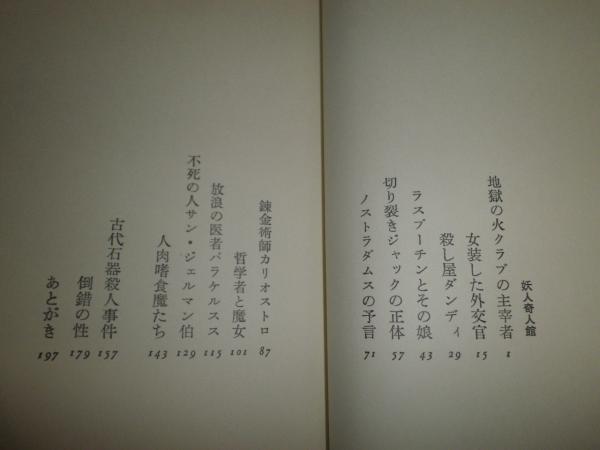 妖人奇人館
地獄の火クラブの主宰者 1
女装した外交官 15
殺し屋ダンディ 29
ラスプーチンとその娘 43
切り裂きジャックの正体 57
ノストラダムスの予言 71
錬金術師カリオストロ 87
哲学者と魔女 101
放浪の医者パラケルスス 115
不死の人サン・ジェルマン伯 129
人肉嗜食魔たち 143
古代石器殺人事件 157
倒錯の性 179
あとがき 197